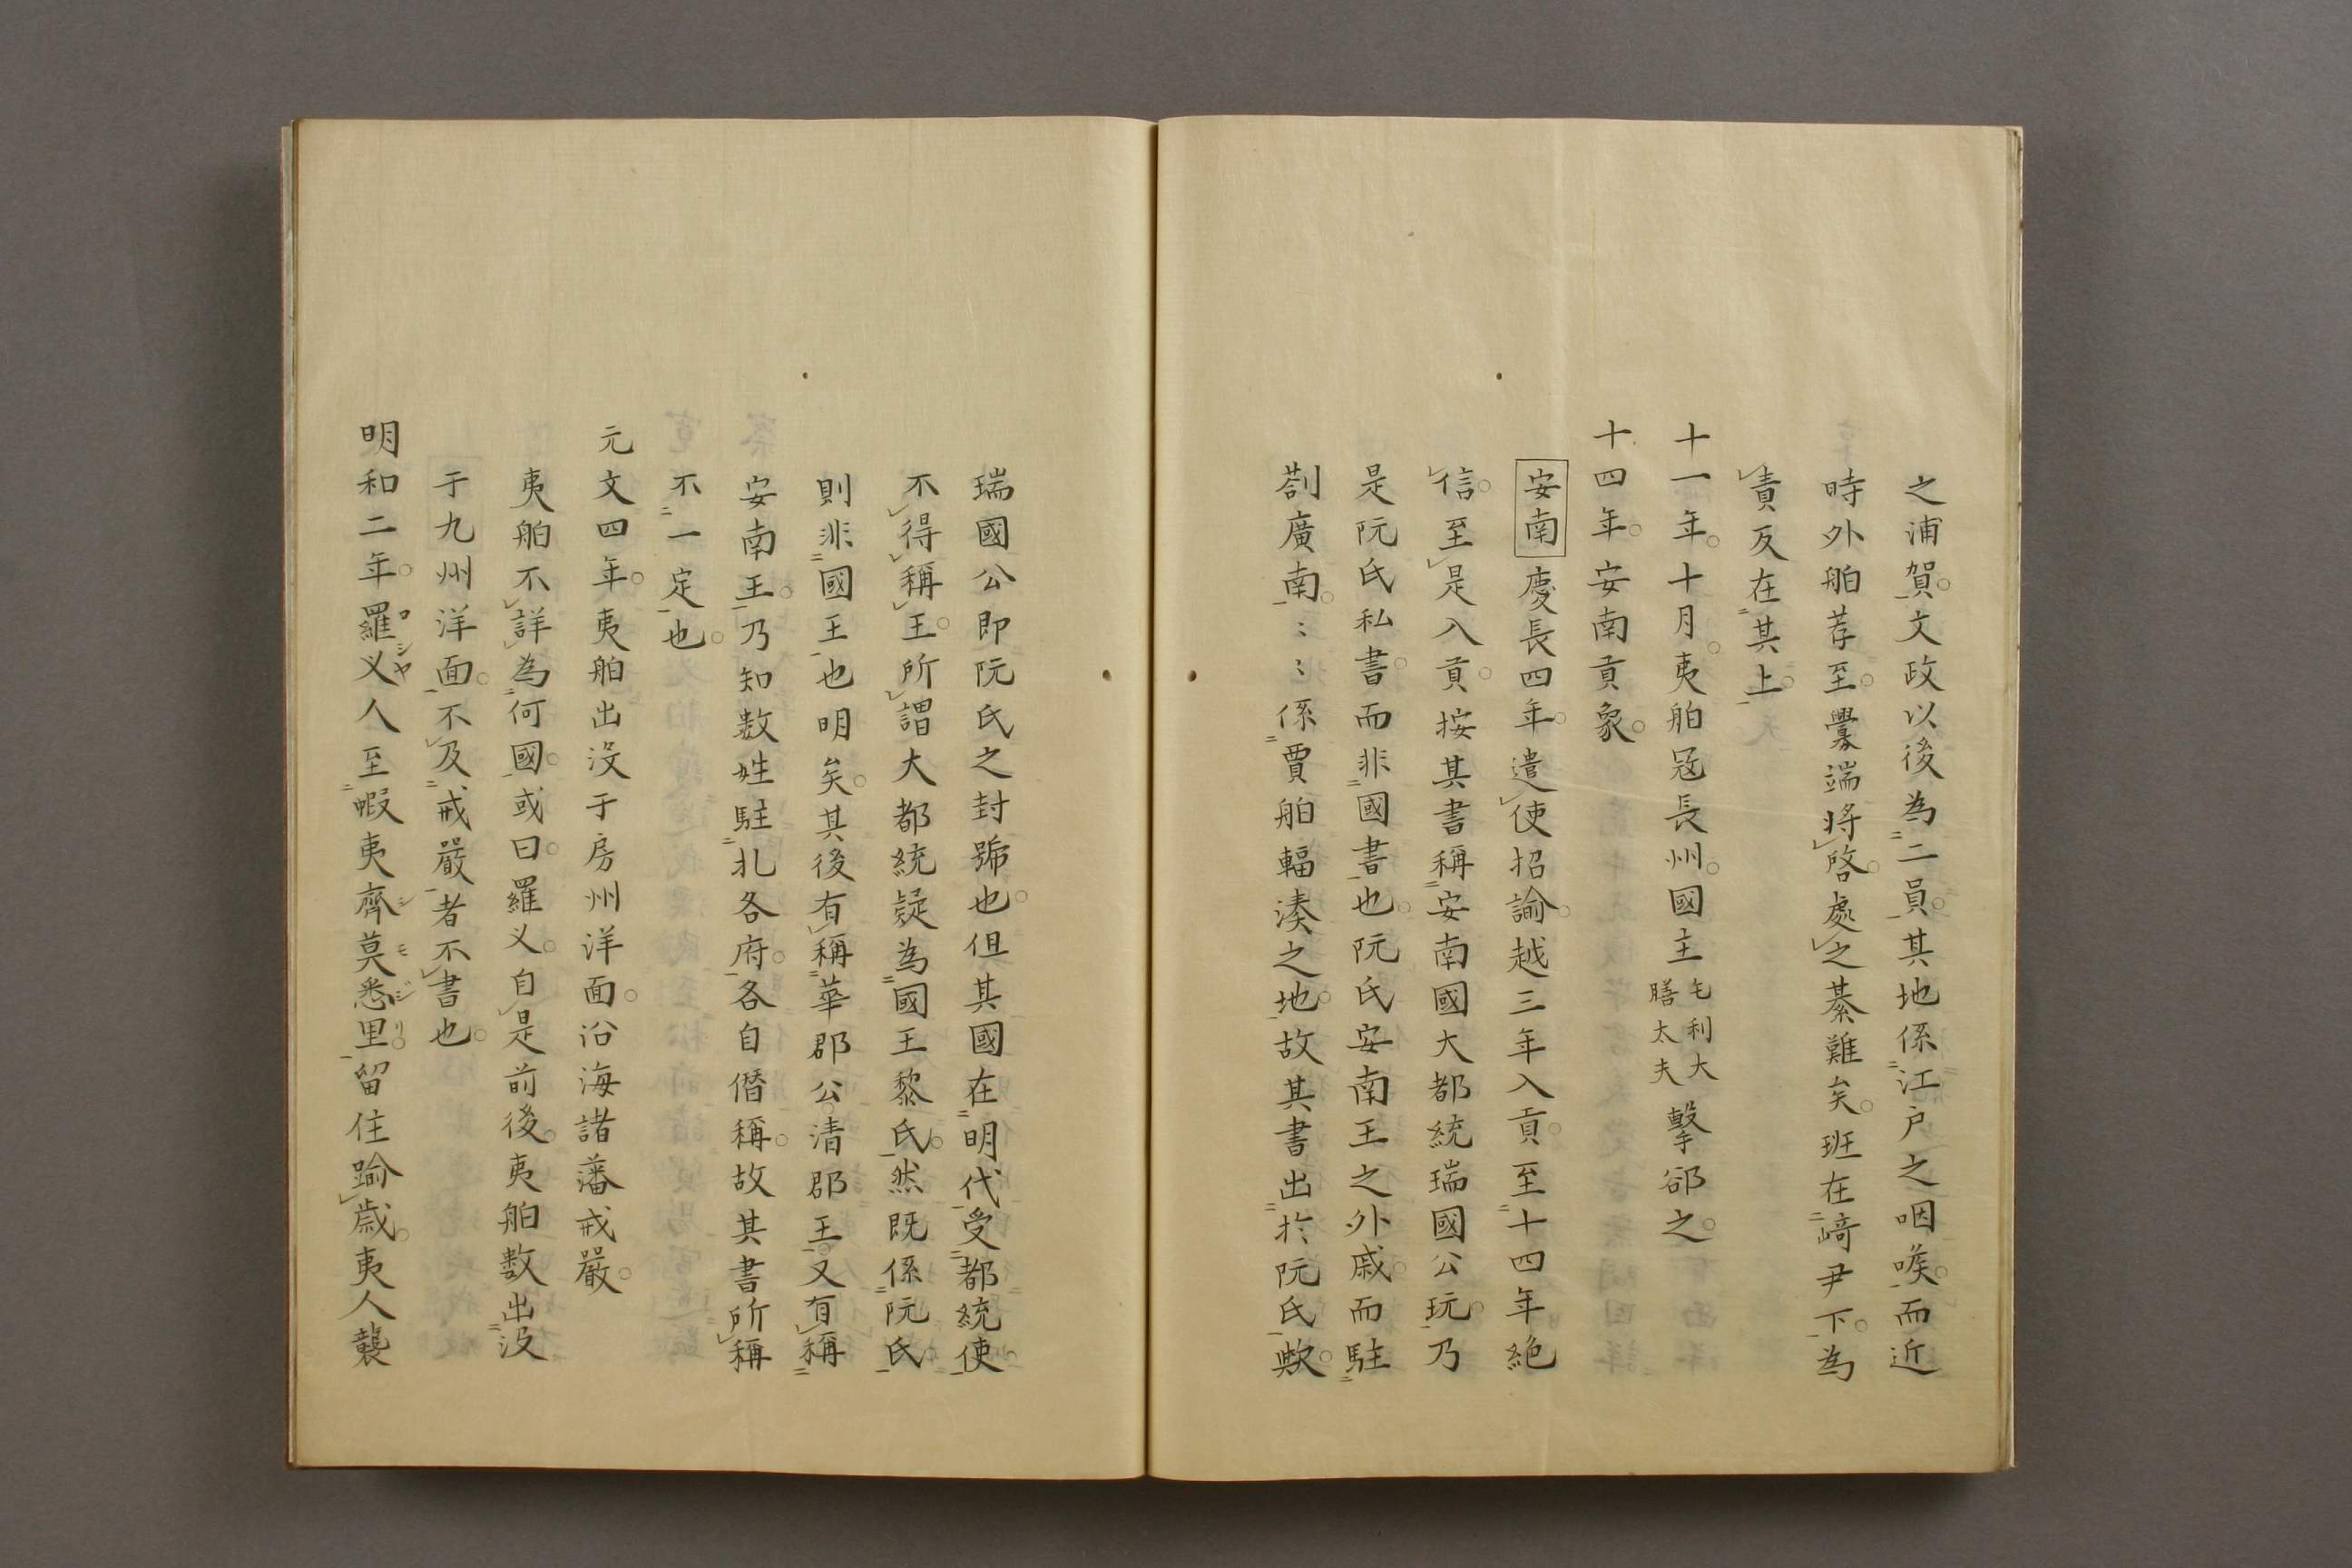 之浦賀。文政以後為二員。其地係江戸之咽喉。而近
時外舶荐至。釁端将啓。處之綦難矣。班在﨑尹下。為
責反在其上。
十一年。十月。夷舶冦長州。國主毛利大膳太夫擊郤之。
十四年。安南貢象。
安南慶長四年。遣使招諭。越三年入貢。至十四年絶
信。至是入貢。按其書稱安南國大都統瑞國公玩。乃
是阮氏私書。而非國書也。阮氏安南王之外戚。而駐
劄廣南。〻〻係賈舶輻湊之地。故其書出於阮氏歟。
瑞國公即阮氏之封號也。但其國在明代受都統使。
不得稱王。所謂大都統疑為國王黎氏。然既係阮氏。
則非國王也明矣。其後有稱華郡公清郡王。又有稱
安南王。乃知数姓駐扎各府。各自僭稱。故其書所稱
不一定也。
元文四年。夷舶出没于房州洋面。沿海諸藩戒嚴。
夷舶不詳為何國。或曰。羅义。自是前後。夷舶数出没
于九州洋面。不及戒嚴者不書也。
明和二年。羅义人至蝦夷齊莫悉里。留住踰歳。夷人襲
ロシヤ
シモジリ